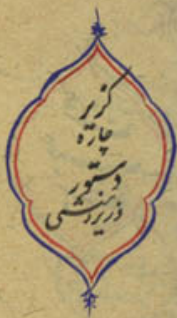 گزیر
چاره
دستور
وزیر و منشی